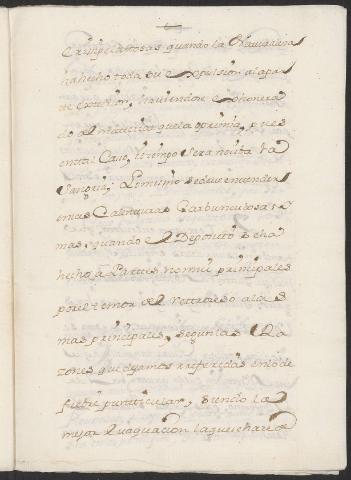 Erisipelatosas quando la Naturaleza
ha hecho toda su expulsion a la par
te exterior, haviendose exhonera
do el material que la oprimia, pues
en tal Caso, tiempo sera nociba la
Sangria; lo mismo se deve entender
en las Calenturas Carbunculosas, y
mas, quando el Deposito se ha
hecho à Partes no mui principales
por el temor del retroceso a las
mas principales, segun las Ra
zones que dejamos referidas en lo de
fiebre puntticular, siendo la
mejor Evaquacion la que se hace